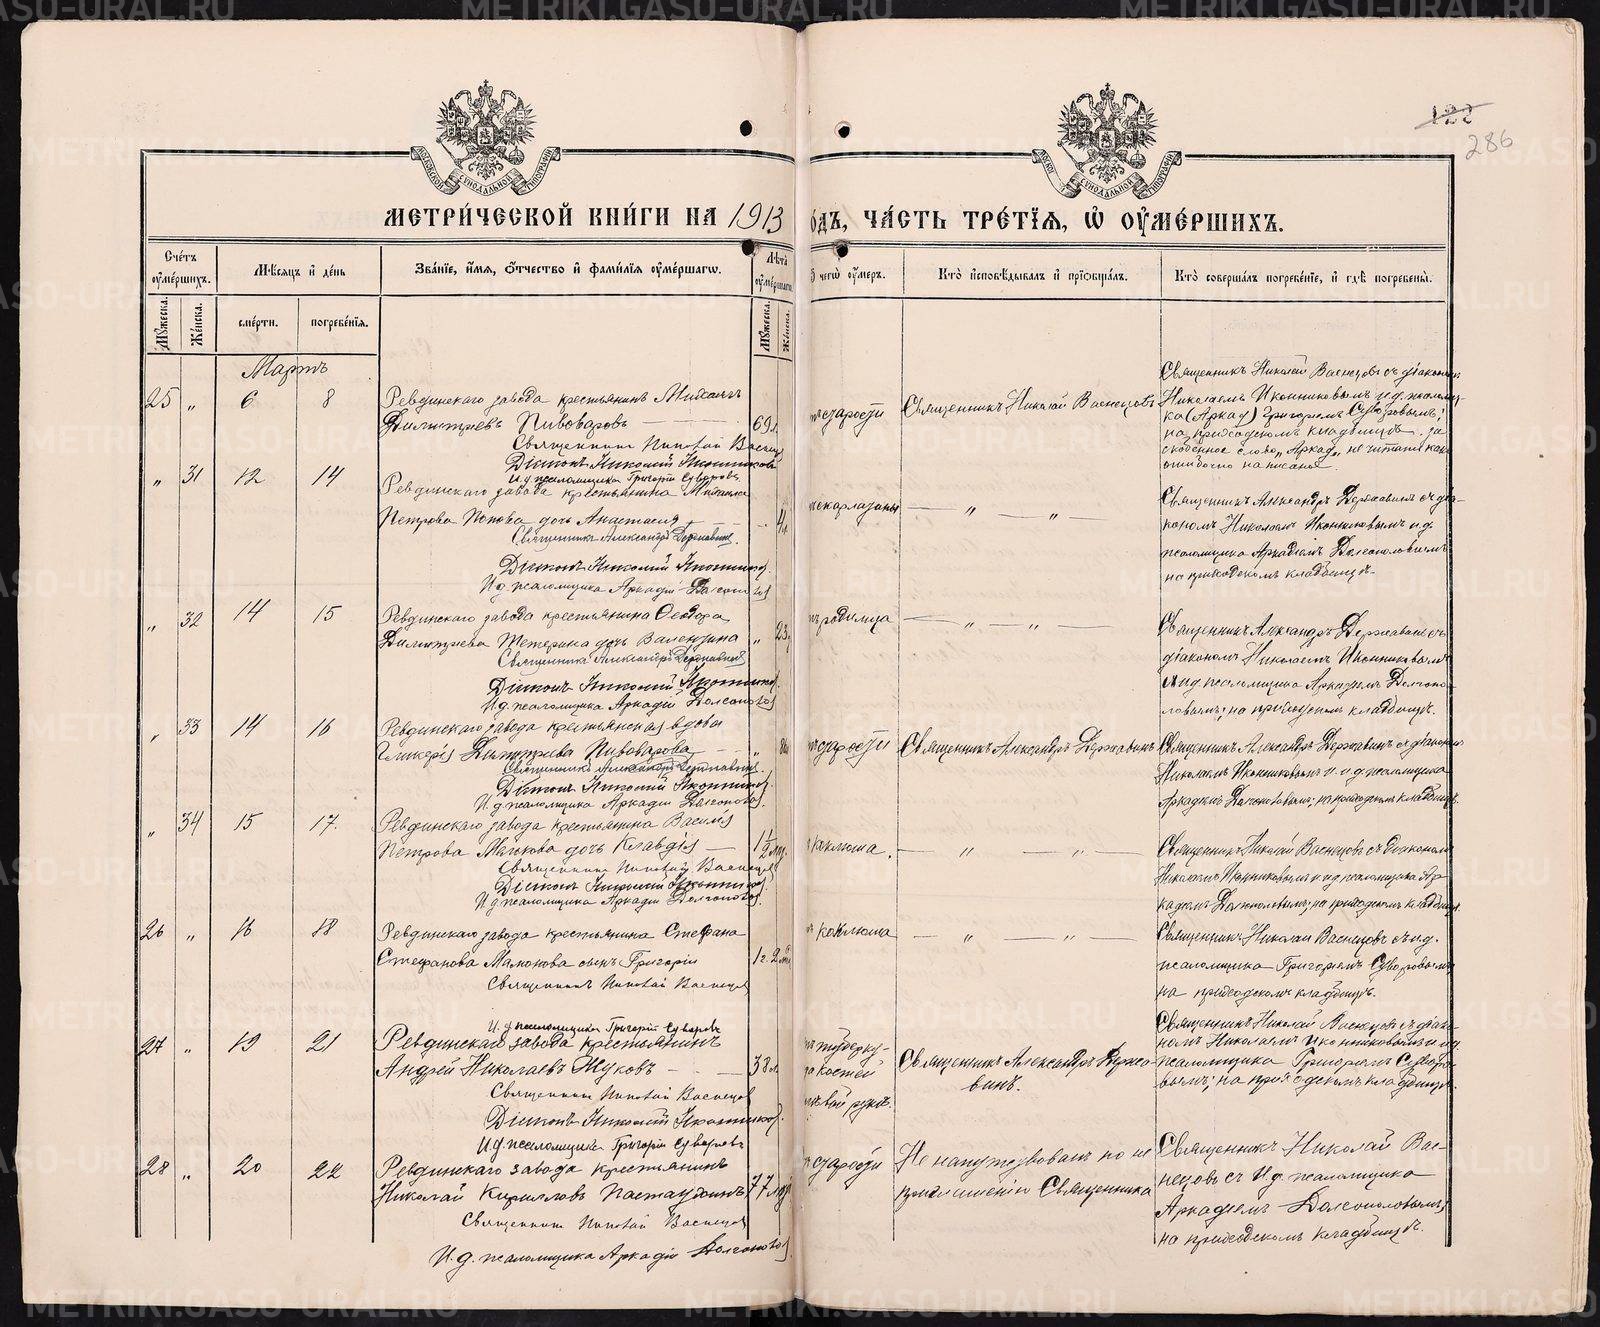 122
286
МОСКОВСКОЙ СѴНОДАЛЬНОЙ ТИПОГРАФІИ
МОСКОВ СѴНОДАЛЬНОЙ ТИПОГРАФІИ
МЕТРИ́ЧЕСКОЙ КНИ́ГИ НА 1913
о́дъ, ЧА́СТЬ ТРЕ́ТІЯ, Ѡ҆ ОУ҆МЕ́РШИХЪ.
Сче́тъ оу҆ме́ршихъ.
Мѣ́сяцъ и҆ де́нь
Зва́нїе, и҆́мя, ѻ҆́тчество и҆ фами́лїя оу҆ме́ршагѡ.
Лѣ́та оу҆ме́ршагѡ
ѿ чегѡ̀ оу҆́меръ.
Кто̀ и҆сповѣ́дывалъ и҆ прїѡбща́лъ.
Кто̀ соверша́лъ погребе́нїе, и҆ гдѣ̀ погребены̀.
Му́жеска.
Же́нска.
сме́рти.
погребе́нїя.
Му́жеска.
Же́нска.
Мартъ
25 " 6 8
Ревдинскаго завода крестьянинъ Михаилъ
Димитріевъ Пивоваровъ
69 л.
Священникъ Николай Васнецовъ
Діаконъ Николай Иконниковъ
И.д. псаломщика Григорій Суворовъ
старости
Священникъ Николай Васнецовъ
Священникъ Николай Васнецовъ съ діакономъ
Николаемъ Иконниковымъ и.д. псаломщи-
ка (Аркад) Григоріемъ Суворовымъ;
на приходскомъ кладбищѣ. за
скобочное слово "Аркад" не читать какъ
ошибочно написанное.
" 31 12 14
Ревдинскаго завода крестьянина Михаила
Петрова Попова дочь Анастасія
Священникъ Александръ Державинъ.
Діаконъ Николай Иконниковъ
И.д. псаломщика Аркадій Долгополов
скарлатины
" "
Священникъ Александръ Державинъ съ діа-
кономъ Николаемъ Иконниковымъ и.д.
псаломщика Аркадіемъ Долгополовымъ
на приходскомъ кладбищѣ.
" 32 14 15
Ревдинскаго завода крестьянина Ѳеодора
Димитріева дочь Валентина
" 23
Священникъ Александръ Державинъ
Діаконъ Николай Иконников
И.д. псаломщика Аркадій Долгополов
родимца
" "
Священникъ Александръ Державинъ съ
діакономъ Николаемъ Иконниковымъ
и и.д. псаломщика Аркадіемъ Долгопо-
ловымъ; на приходскомъ кладбищѣ.
" 33 14 16
Ревдинскаго завода крестьянская вдова
Гликерія Димитріева Пивоварова
Священникъ Александръ Державинъ.
Діаконъ Николай Иконников
И.д. псаломщика Аркадій Долгополов
старости
Священникъ Александръ Державинъ
Священникъ Александръ Державинъ съ діакономъ
Николаемъ Иконниковымъ и и.д. псаломщика
Аркадіемъ Долгополовымъ; на приходскомъ кладбищѣ.
" 34 15 17.
Ревдинскаго завода крестьянина Василія
Петрова дочь Клавдія
1 1/2 мѣс.
Священникъ Николай Васнецов
Діаконъ Николай Иконников
И.д. псаломщика Аркадій Долгополов
коклюша.
" "
Священникъ Николай Васнецовъ съ діакономъ
Николаемъ Иконниковымъ и и.д. псаломщика Ар-
кадіемъ Долгополовымъ; на приходскомъ кладбищѣ.
26 " 16 18
Ревдинскаго завода крестьянина Стефана
Стефанова Мамонова сынъ Григорій
1 г. 2 мѣс.
Священникъ Николай Васнецов
И.д. псаломщика Григорій Суворовъ
коклюша
" "
Священникъ Николай Васнецовъ съ и.д.
псаломщика Григоріемъ Суворовымъ
на приходскомъ кладбищѣ.
27 " 19 21
Ревдинскаго завода крестьянинъ
Андрей Николаевъ Жуковъ
38 л.
Священникъ Николай Васнецов
Діаконъ Николай Иконников
И.д. псаломщика Григорій Суворовъ
туберку-
костей
лѣвой рукѣ.
Священникъ Александръ Держа-
винъ.
Священникъ Николай Васнецовъ съ діако-
номъ Николаемъ Иконниковымъ и и.д.
псаломщика Григоріемъ Суворо-
вымъ; на приходскомъ кладбищѣ.
28 " 20 22
Ревдинскаго завода крестьянинъ
Николай Кирилловъ
77
Священникъ Николай Васнецов
И.д. псаломщика Аркадій Долгополов
старости
Не напутствованъ по не
приглашенію Священника
Священникъ Николай Вас-
нецовъ съ И.д. псаломщика
Аркадіемъ Долгополовымъ;
на приходскомъ кладбищѣ.
METRIKI.GASO-URAL.RU